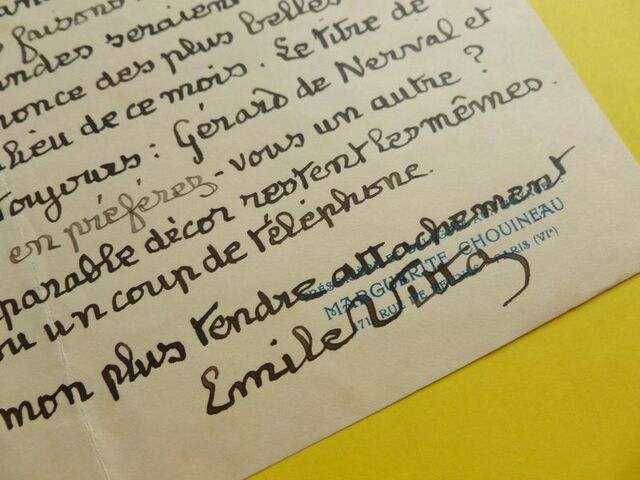 faisons
seraient
des plus belles
de ce mois. Le titre de
Toujours : Gérard de Nerval et
en préférez-vous un autre ?
décor restent les mêmes.
ou un coup de téléphone.
mon plus tendre attachement
MARGUERITE CHOUINEAU
PARIS (VIe)
Emile Vitta